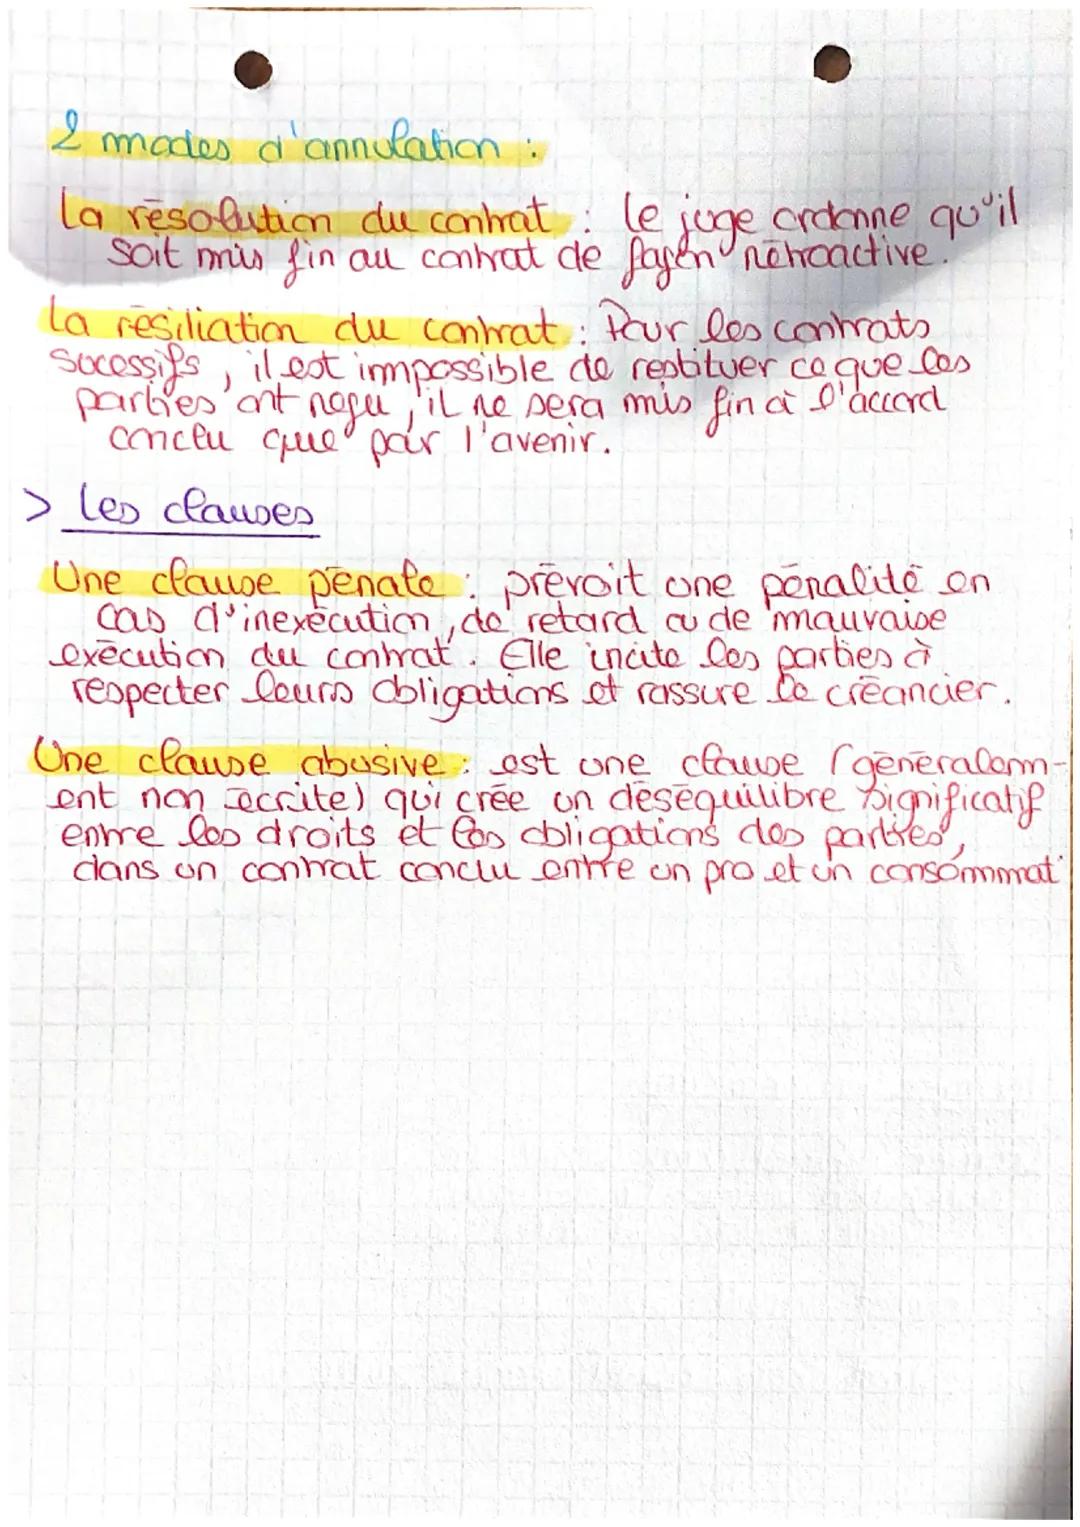 2 modes d'annulation :
La résolution du contrat : le juge ordonne qu'il
soit mis fin au contrat de façon rétroactive.
La résiliation du contrat : Pour les contrats
sucessifs, il est impossible de restituer ce que les
parties ont reçu, il ne sera mis fin à l'accord
conclu que par l'avenir.
> Les clauses
Une clause pénale : prévoit une pénalité en
cas d'inexécution, de retard ou de mauvaise
exécution du contrat. Elle incite les parties à
respecter leurs obligations et rassure le créancier.
Une clause abusive : est une clause (généralem-
ent non écrite) qui crée un déséquilibre significatif
entre les droits et les obligations des parties,
dans un contrat conclu entre un pro et un consommat